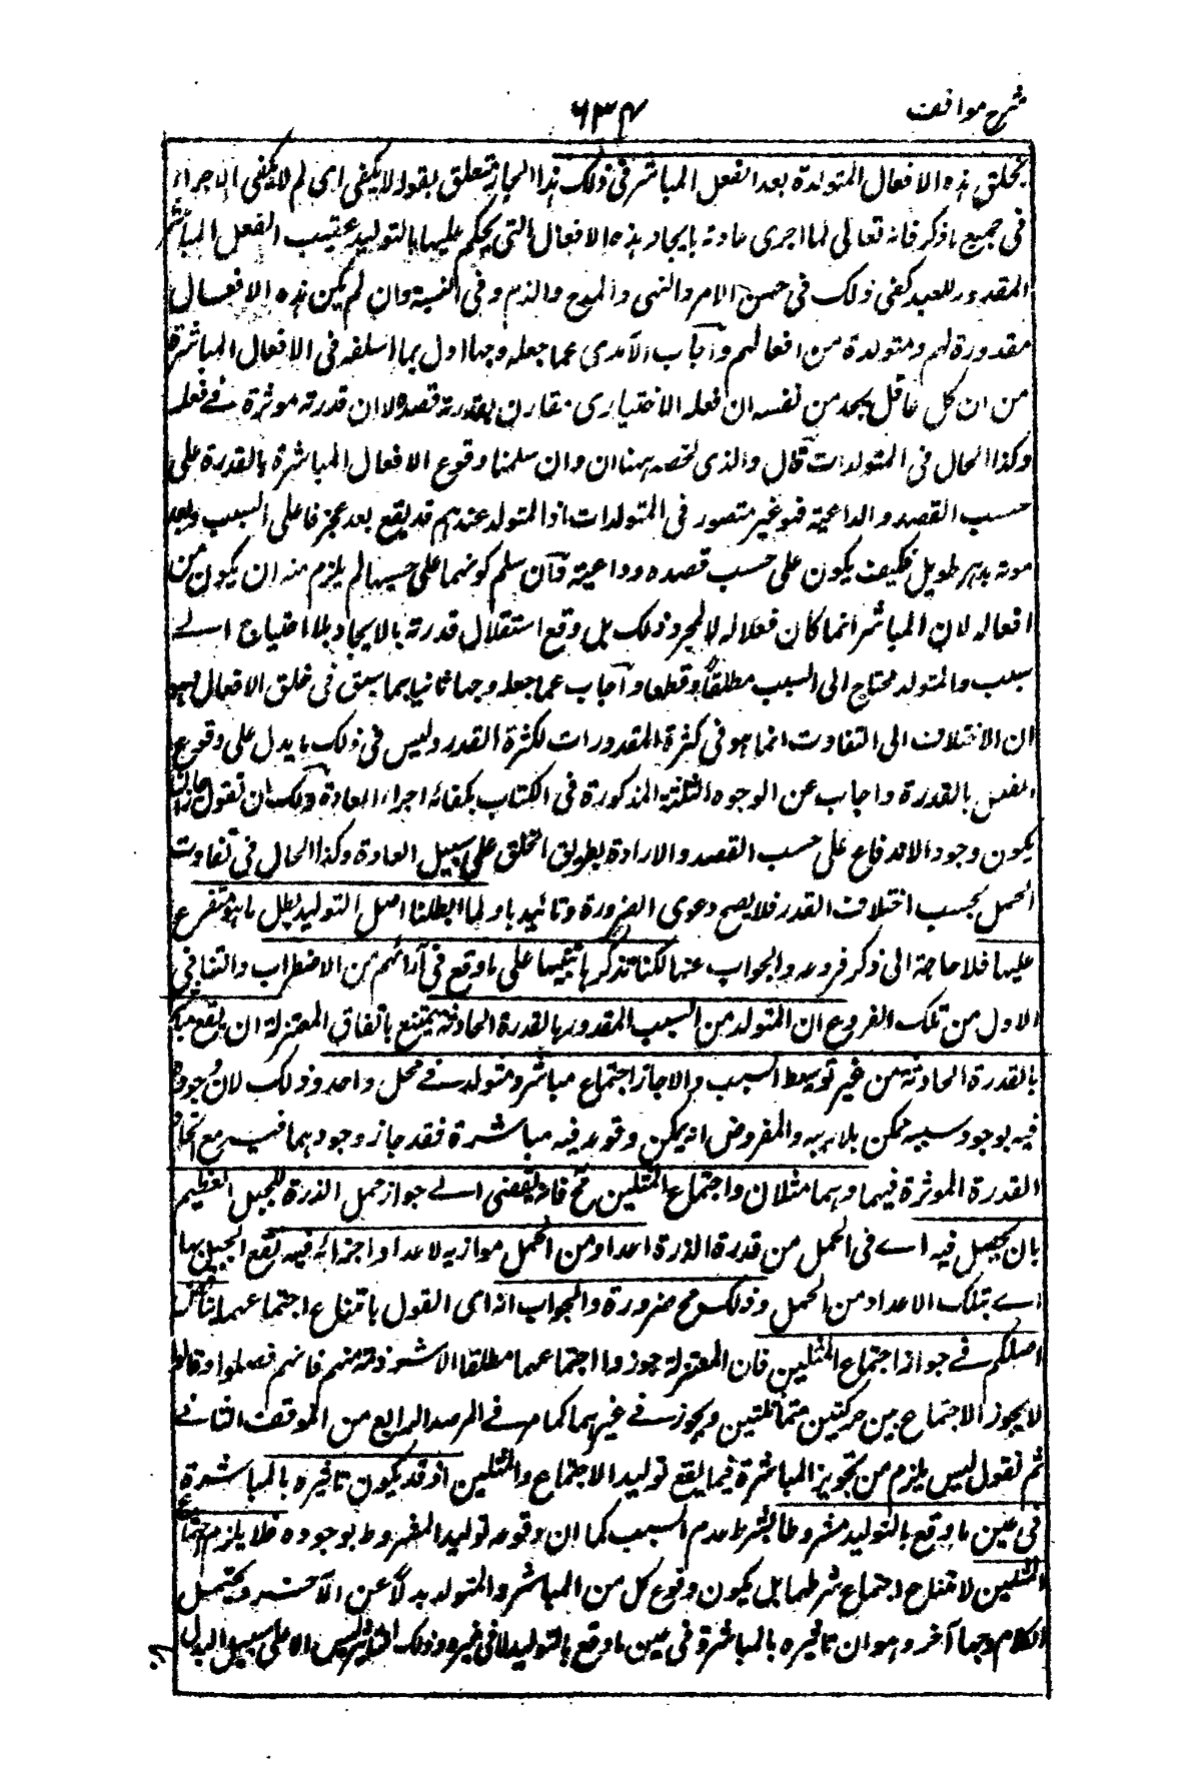 شرح مواقف
٦٣٤
بخلق هذه الافعال المتولدة بعد الفعل المباشر فى ذلك هذا الجار متعلق بقوله لا يكفى اى لم لا يكفى الاجراء
فى جميع ما ذكر فانه تعالى لما اجرى عادته بايجاد هذه الافعال التى يحكم عليها بالتوليد عقيب الفعل المباشر
المقدور للعبد كفى ذلك فى حسن الامر والنهى والمدح والذم وفى النسبة وان لم يكن هذه الافعال
مقدورة لهم ومتولدة من افعالهم وآجاب الآمدى عما جعله وجها اول بما اسلفه فى الافعال المباشرة
من ان كل عاقل يجد من نفسه ان فعله الاختيارى مقارن بقدرته قصده لا ان قدرته موثرة فے فعله
وكذا الحال فى المتولدات قال والذى نخصه ههنا ان وان سلمنا وقوع الافعال المباشرة بالقدرة على
حسب القصد والداعية فهو غير متصور فى المتولدات اذا المتولد عندهم قد يقع بعد عجز فاعل السبب وبعد
موته بدهر طويل فكيف يكون على حسب قصده وداعيته فآن سلم كونهما على حسبها لم يلزم منه ان يكون من
افعاله لان المباشر انما كان فعلا له لا لمجرد ذلك بل وقع استقلال قدرته بالايجاد بلا احتياج الے
سبب والمتولد محتاج الى السبب مطلقا وقطعا وآجاب عما جعله وجها ثانيا بما سبق فى خلق الافعال فهو
ان الاختلاف الى التفاوت انما هو فى كثرة المقدورات لكثرة القدر وليس فى ذلك ما يدل على وقوع
الفعل بالقدرة واجاب عن الوجوه الثلثة المذكورة فى الكتاب بكفاية اجراء العادة ولك ان تقول جاز ان
يكون وجود الاندفاع على حسب القصد والارادة بطريق الخلق على سبيل العادة وكذا الحال فى تفاوت
الحمل بحسب اختلاف القدر فلا يصح دعوى الضرورة وتائيدها ولما ابطلنا اصل التوليد بطل ما هو متفرع
عليها فلا حاجة الى ذكر فروعه والجواب عنها لكنا نذكرها تنبيها على ما وقع فى آرائهم من الاضطراب والتنافى
الاول من تلك الفروع ان المتولد من السبب المقدور بالقدرة الحادثة يمتنع باتفاق المعتزلة ان يقع مباشرا
بالقدرة الحادثة من غير توسط السبب والا جاز اجتماع مباشر ومتولد فے محل واحد وذلك لان وجوده
فيه بوجود سببه ممكن بلا ريبه والمفروض انه يمكن وقوعه فيه مباشرة فقد جاز وجودهما فيه مع اتحاد
القدرة الموثرة فيهما وهما مثلان واجتماع المثلين مح فانه يفضى الے جواز حمل الذرة للجبل العظيم
بان يحصل فيه اے فى الحمل من قدرة الذرة اعداد من الحمل موازية لاعداد اجزائه فيه يقع الجبل بها
اے بتلك الاعداد من الحمل وذلك مح ضرورة والجواب انه اى القول بامتناع اجتماعهما يناقض
اصلكم فے جواز اجتماع المثلين فان المعتزلة جوزوا اجتماعهما مطلقا الا شرذمة منهم فانهم فصلوا وقالوا
لا يجوز الاجتماع بين حركتين متماثلتين ويجوز فے غيرهما كما مر فے المرصد الرابع من الموقف الثانے
ثم نقول ليس يلزم من تجويز المباشرة فيما يقع توليدا لاجتماع والمثلين اذ قد يكون تاثيره بالمباشرة
فى عين ما وقع بالتوليد مشروطا بشرط عدم السبب كما ان وقوعه توليدا مشروط بوجوده فلا يلزم اجتماع
المثلين لامتناع اجتماع شرطهما بل يكون وقوع كل من المباشر والمتولد بدلا عن الآخر ويحتمل
الكلام وجها آخر وهو ان تاثيره بالمباشرة فى عين ما وقع بالتوليد لا فى غيره وذلك التاثير ليس الا على سبيل البدل